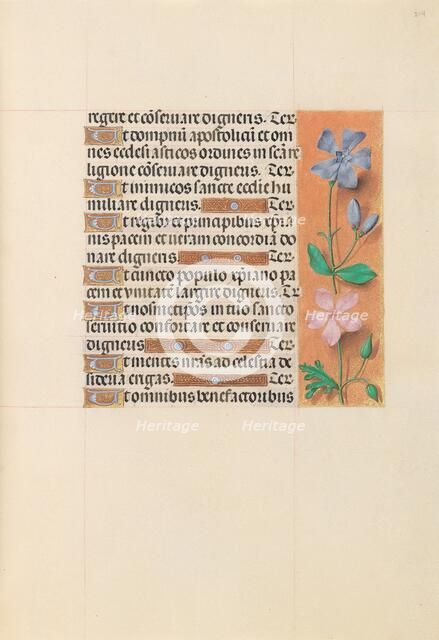 214
regere et cõservare digneris. Ter.
Ut dompnũ apostolicũ et om
nes ecclesiasticos ordines in scã re
ligione cõservare digneris. Ter.
Ut inimicos sancte ecclie hu
miliare digneris. Ter.
Ut regibus et principibus xp̃ia
nis pacem et veram concordiã do
nare digneris. Ter.
Ut cuncto populo xp̃iano pa
cem et vnitatẽ largire digneris. Tr̃
Ut nosmetipos in tuo sancto
servitio confortare et conservare
digneris Ter.
Ut mentes nr̃as ad celestia de
sideria erigas. Ter.
Ut omnibus benefactoribus
Heritage Heritage Heritage
Heritage Heritage Heritage